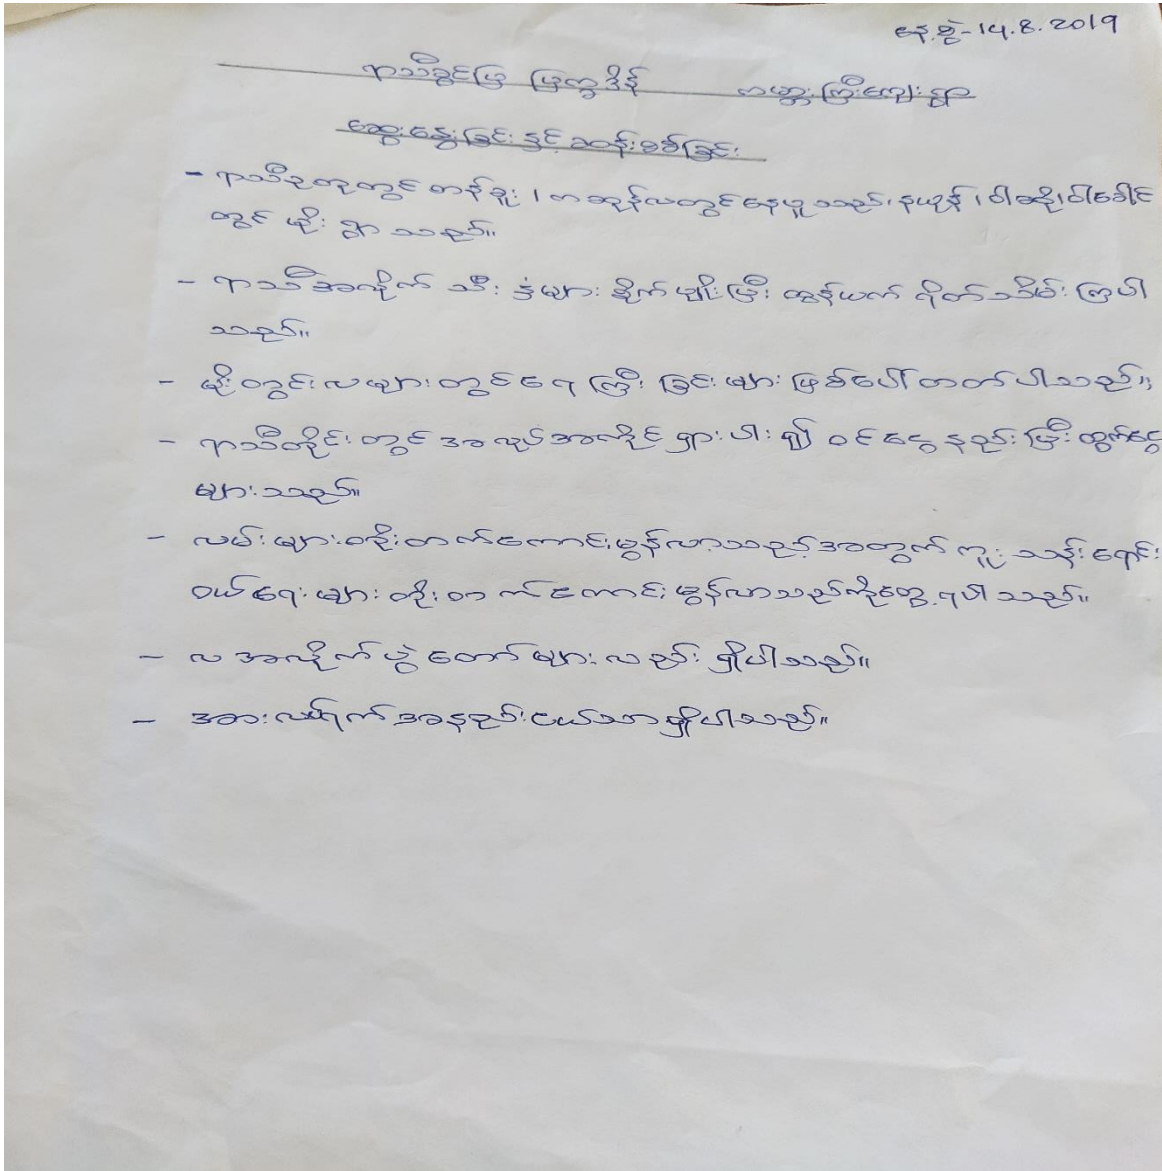 နေ့စွဲ-14.8.2019
ရာသီခွင်ပြ ပြက္ခဒိန် ကမ္ဘူးကြီးကျေးရွာ
ဆွေးနွေးခြင်းနှင့် ဆန်းစစ်ခြင်း
- ရာသီဥတုတွင် တန်ခူး ၊ ကဆုန်လတွင်နေပူသည်၊ နယုန် ၊ ဝါဆို၊ ဝါခေါင်
တွင် မိုး ရွာ သည်။
- ရာသီအလိုက် သီး နှံများ စိုက်ပျိုးပြီး ထွန်ယက် ရိတ်သိမ်း ကြပါ
သည်။
- မိုးတွင်းလများတွင် ရေ ကြီး ခြင်းများ ဖြစ်ပေါ်တတ်ပါသည်။
- ရာသီတိုင်းတွင် အလုပ်အကိုင် ရှားပါး ၍ ဝင်ငွေ နည်းပြီး ထွက်ငွေ
များသည်။
- လမ်းများတိုးတက်ကောင်းမွန်လာသည့်အတွက် ကူးသန်းရောင်း
ဝယ်ရေးများ တိုးတက်ကောင်းမွန်လာသည်ကိုတွေ့ရပါသည်။
- လ အလိုက် ပွဲတော်များလည်း ရှိပါသည်။
- အားလပ်ရက်အနည်းငယ်သာရှိပါသည်။